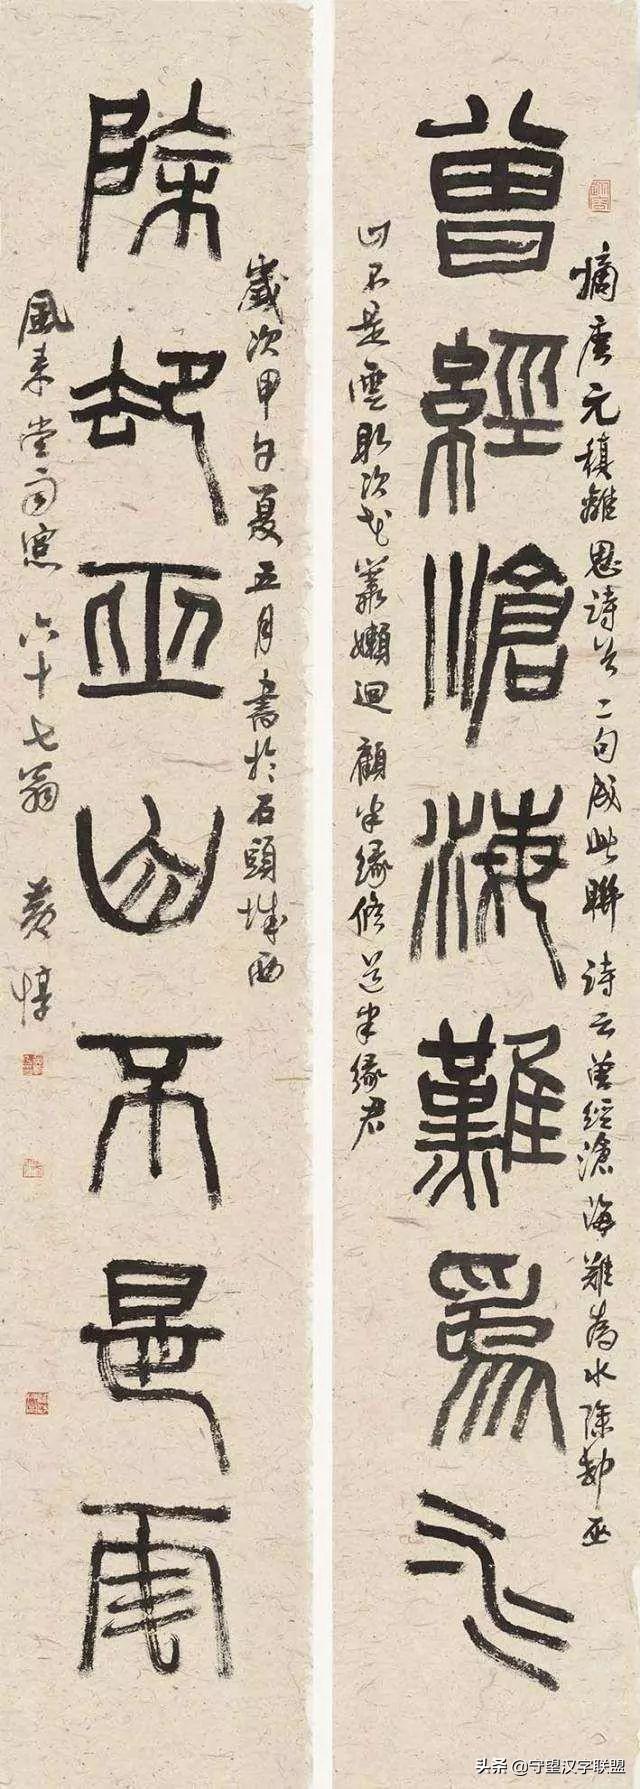 摘唐元稹離思詩首二句成此聯 詩云曾經滄海難為水除却巫
曾經滄海難爲水
山不是雲取次花叢嬾迴顧半緣修道半緣君
歲次甲午夏五月書於石頭城西
除却巫山不是雲
風來堂南窗 六十七翁 黄惇
头条 @守望汉字联盟